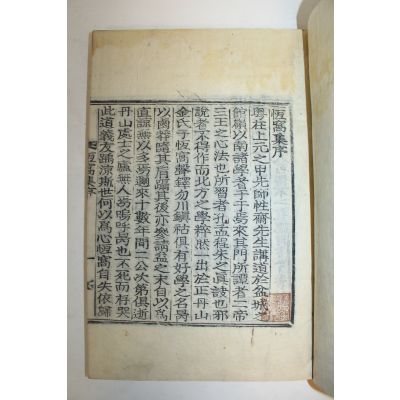 恆窩集序
粤在上元之甲先師性齋先生講道於盆城之
館嶺以南諸學者于于焉來其門所譚者二帝
三王之心法也所習者孔孟程朱之眞詮也邪
說者不得作而北方之學粹然一出於正丹山
金氏子恆窩聲鐸勿川鎭祜俱有好學之名
以鹵莽隨其肩踹其後亦參請益之末自以爲
直諒無以多焉邇來十數年間二公次第俱逝
丹山處士之廬無人焉嗚呼曷也不死而存哭
此道義友踽涼斯世何以爲心恆窩自失依歸
恆窩集序
一